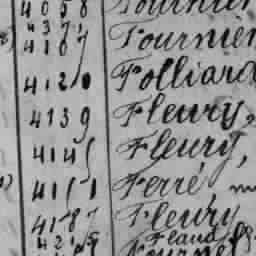 4058 Fournier
4371
4167 Fournier
4120 Folliard
4139 Fleury,
4145 Fleury,
4151 Ferré
4187 Fleury
Fland
Fournel